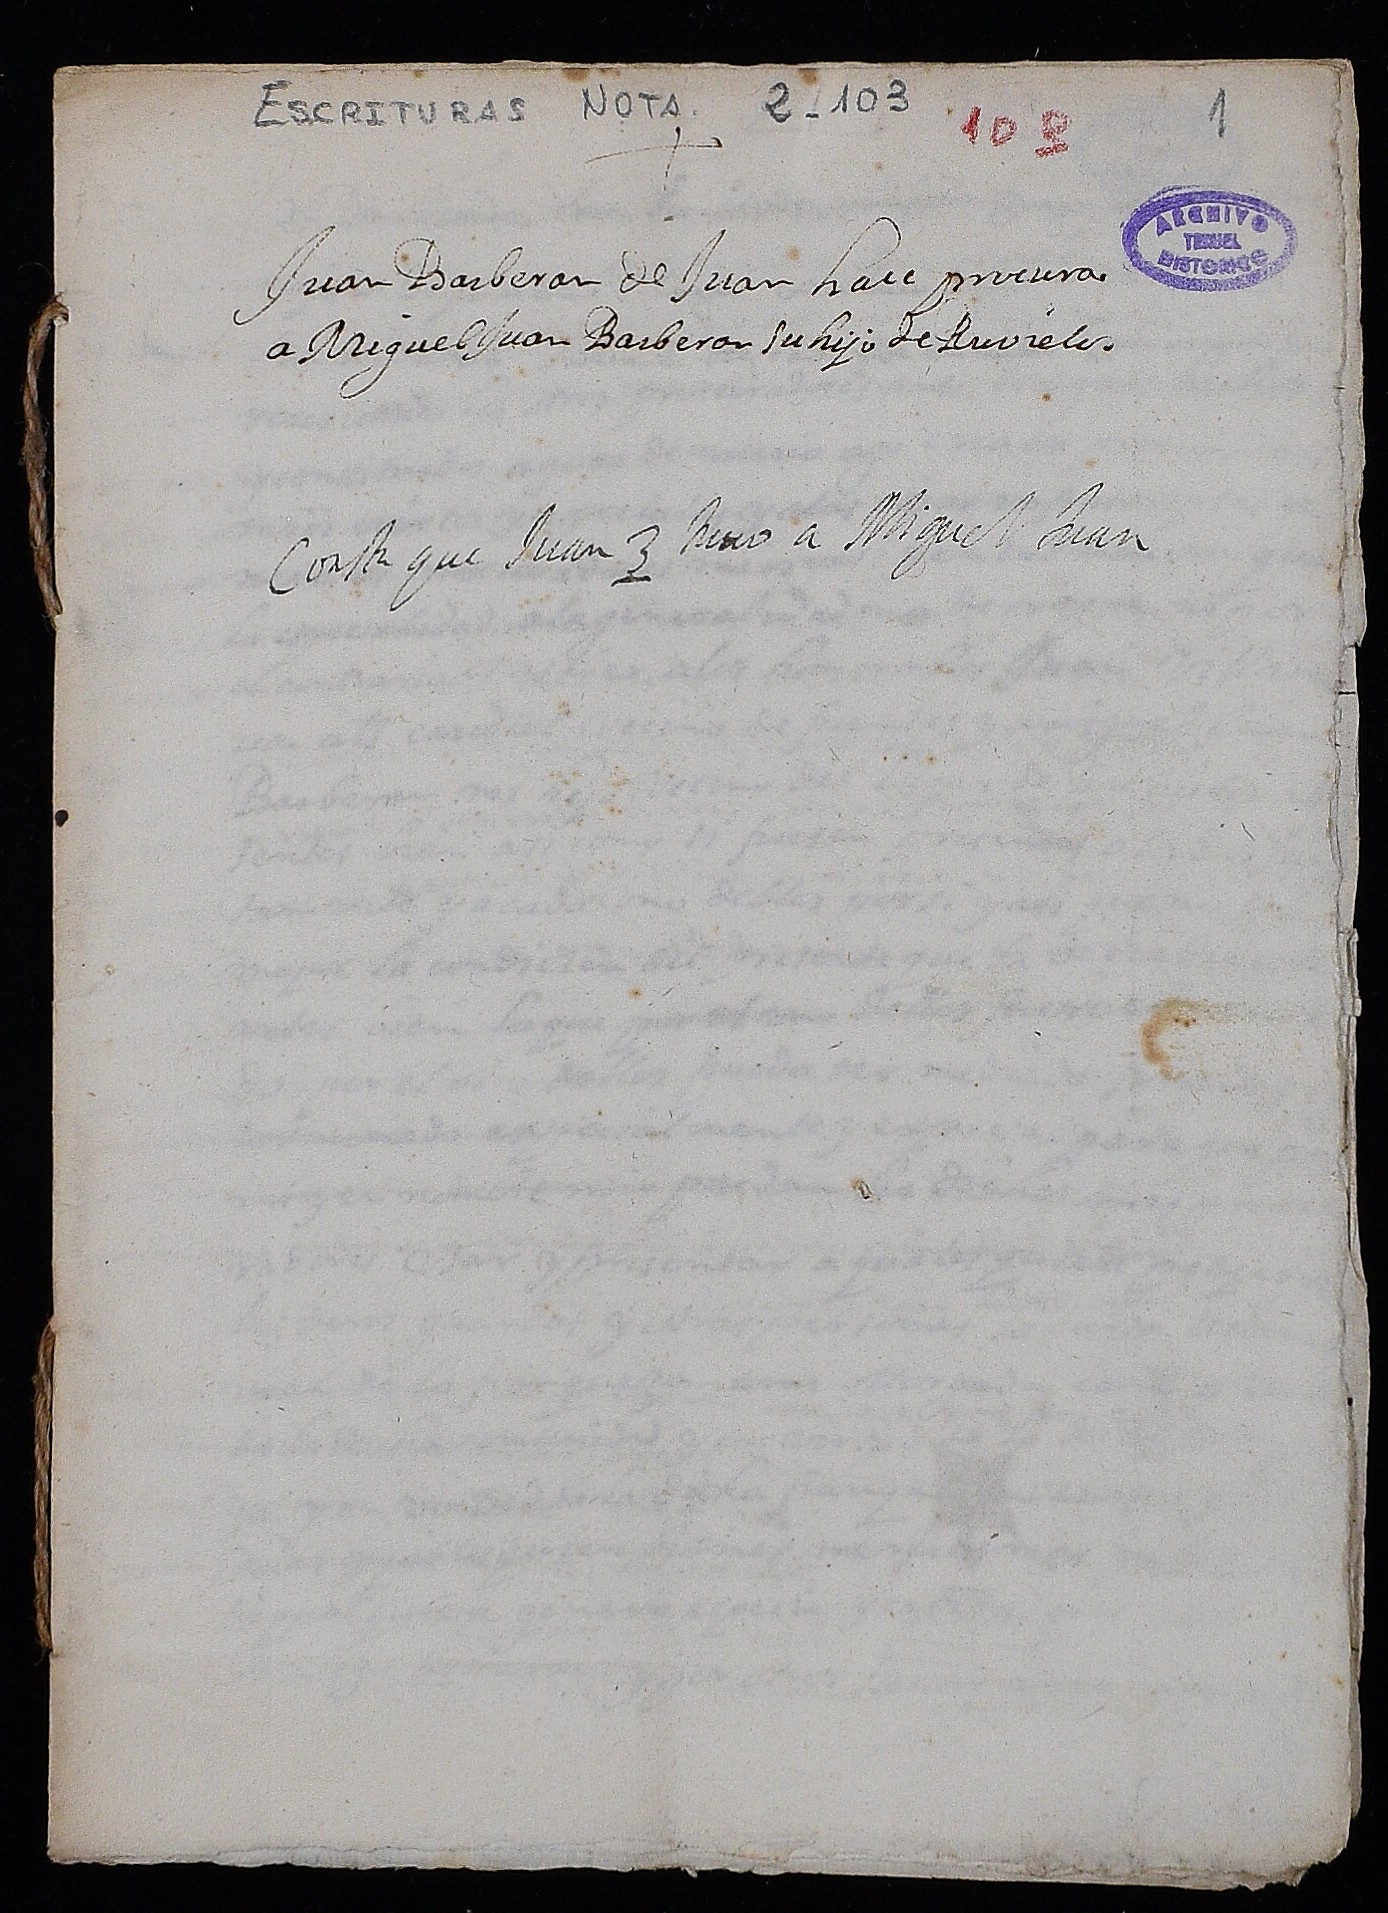 ESCRITURAS NOTA. 2-103
10 2
1
ARCHIVO
TERUEL
HISTORICO
Juan Barberan de Juan hace procura
a Miguel Juan Barberan su hijo de
Consta que Juan 3 tuvo a Miguel Juan